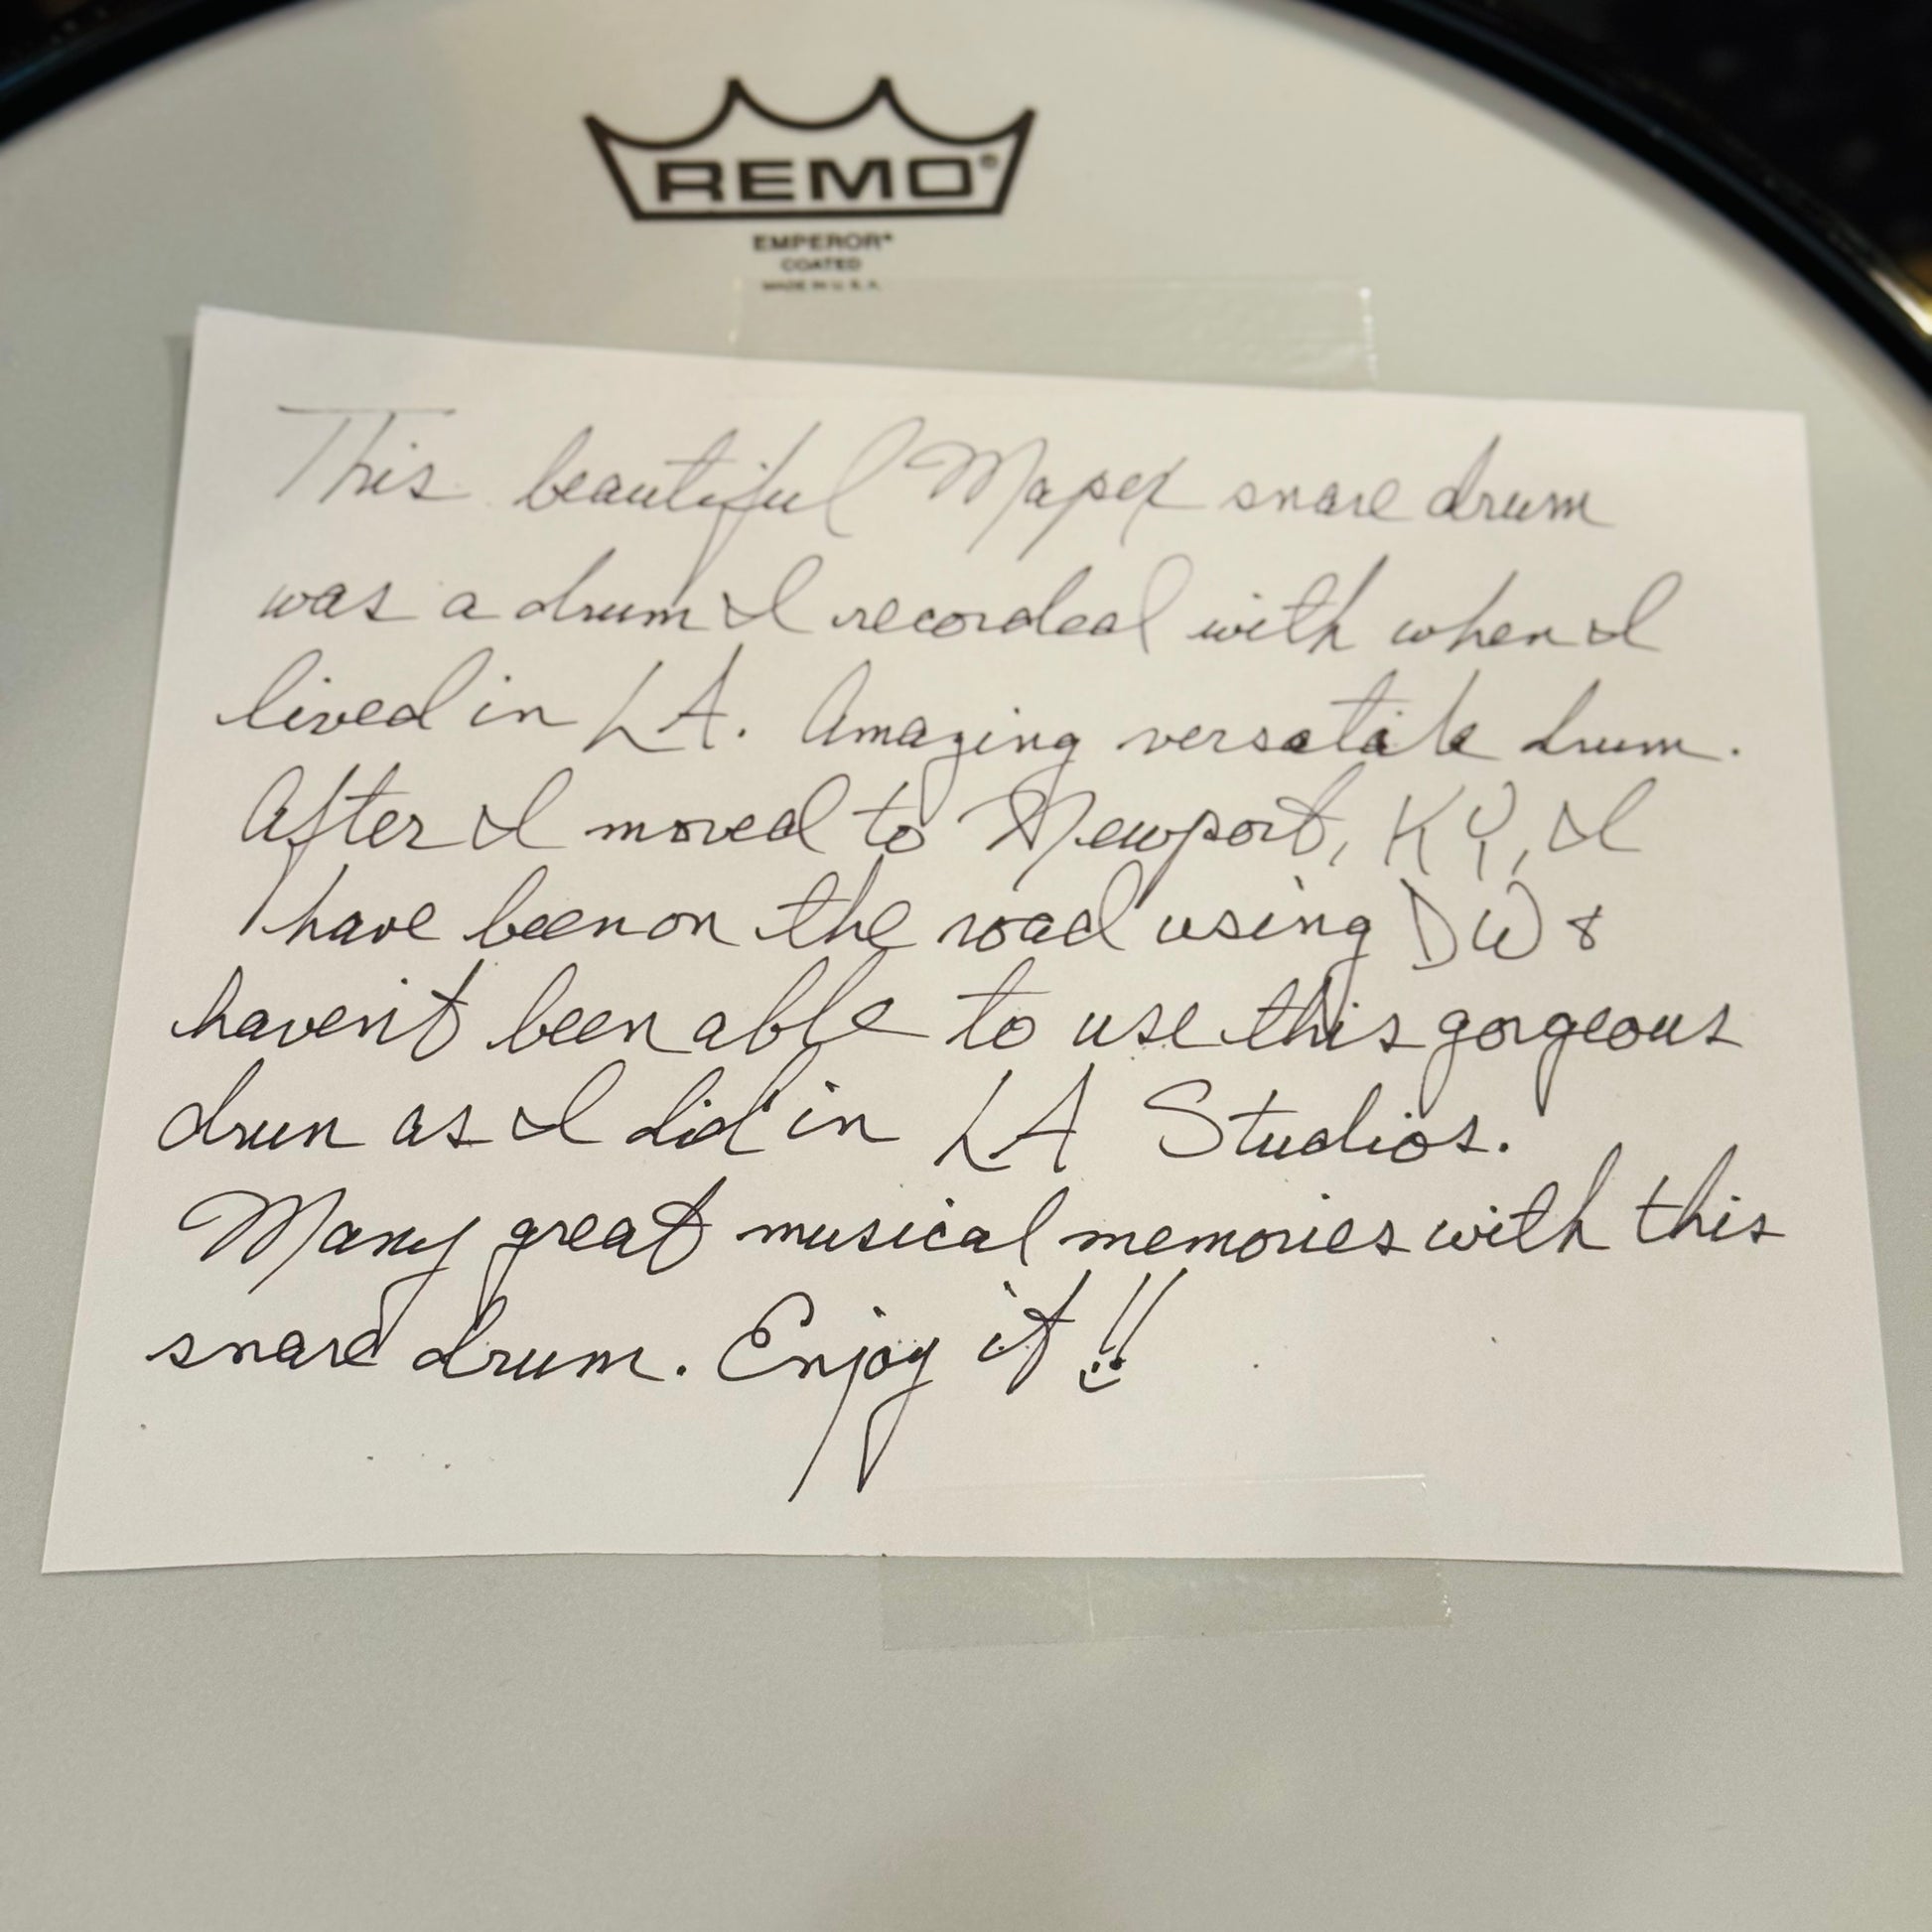 REMO®
EMPEROR®
COATED
MADE IN U.S.A.
This beautiful Mapex snare drum
was a drum I recorded with when I
lived in LA. Amazing versatile drum.
After I moved to Newport, KY, I
have been on the road using DW &
haven't been able to use this gorgeous
drum as I did in LA Studios.
Many great musical memories with this
snare drum. Enjoy it!!